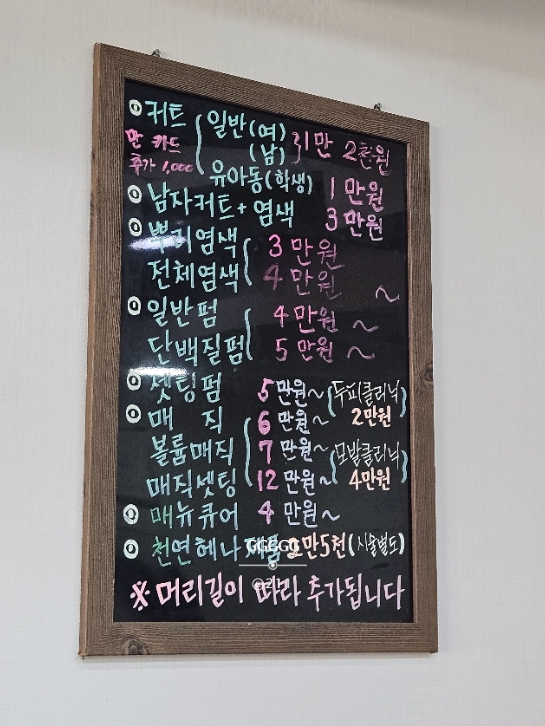 커트 일반(여) 1만 2천원
만 카드 (남)
추가 1,000 유아동(학생) 1만원
남자커트+염색 3만원
뿌리염색 3만원
전체염색 4만원~
일반펌 4만원~
단백질펌 5만원~
셋팅펌 5만원~ 두피클리닉
매직 6만원~ 2만원
볼륨매직 7만원~ 모발클리닉
매직셋팅 12만원~ 4만원
매뉴큐어 4만원~
천연헤나 만5천(시술별도)
※머리길이 따라 추가됩니다